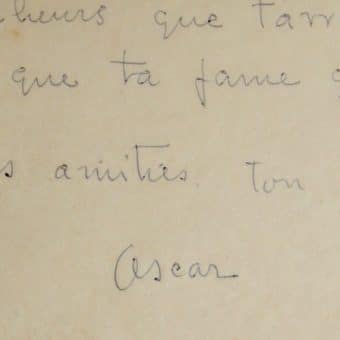 heurs que tarr
que ta fame
s amitiés. ton
Oscar